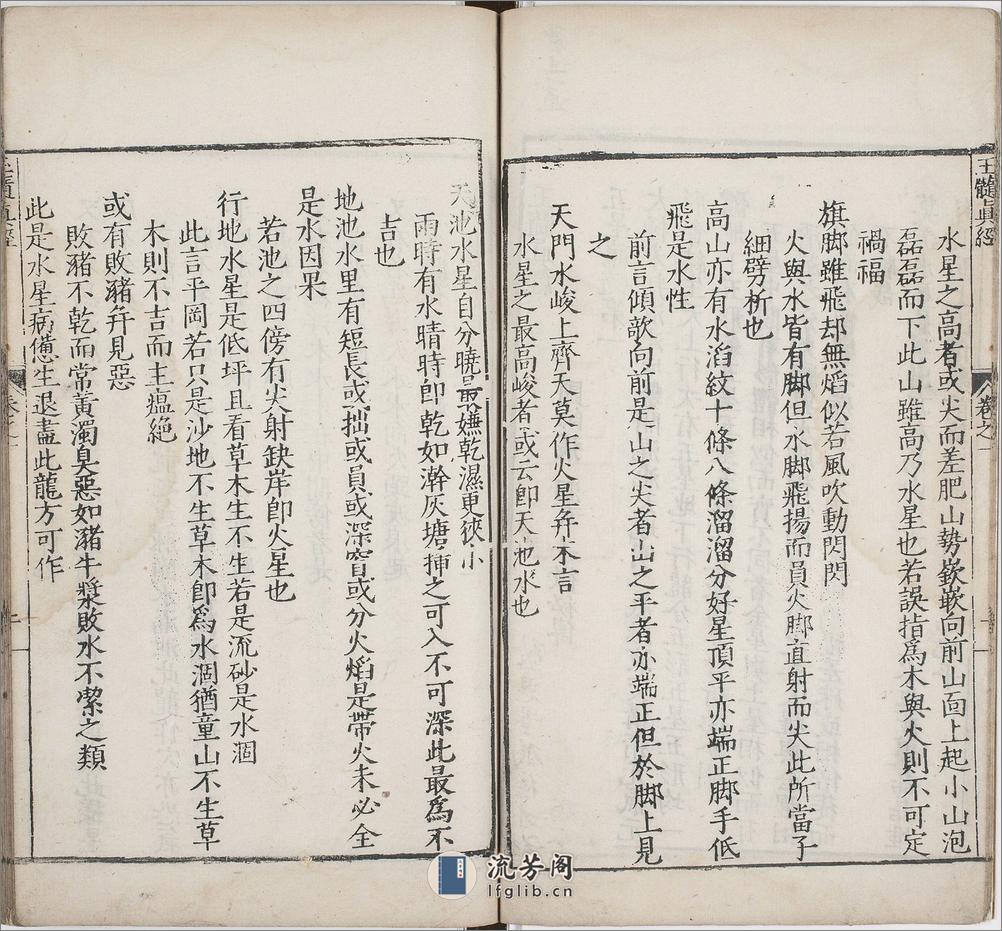 玉髓真經
卷之一
水星之高者或尖而差肥山勢嶔嶔向前山面上起小山泡
磊磊而下此山雖高乃水星也若誤指爲木與火則不可定
禍福
旗脚雖飛却無焰似若風吹動閃閃
火與水皆有脚但水脚飛揚而員火脚直射而尖此所當子
細劈析也
高山亦有水滔紋十條八條溜溜分好星頂平亦端正脚手低
飛是水性
前言傾欹向前是山之尖者山之平者亦端正但於脚上見
之
天門水峻上齊天莫作火星并木言
水星之最高峻者或云卽天池水也
天池水星自分曉最嫌乾濕更狹小
雨時有水晴時卽乾如澣灰塘揷之可入不可深此最爲不
吉也
地池水里有短長或拙或員或深窅或分火焰是帶火未必全
是水因果
若池之四傍有尖射缺岸卽火星也
行地水星是低坪且看草木生不生若是流砂是水涸
此言平岡若只是沙地不生草木卽爲水涸猶童山不生草
木則不吉而主瘟絶
或有敗豬并見惡
敗豬不乾而常黃濁臭惡如潴牛漿敗水不潔之類
此是水星病憊生退盡此龍方可作
流芳阁
lfglib.cn